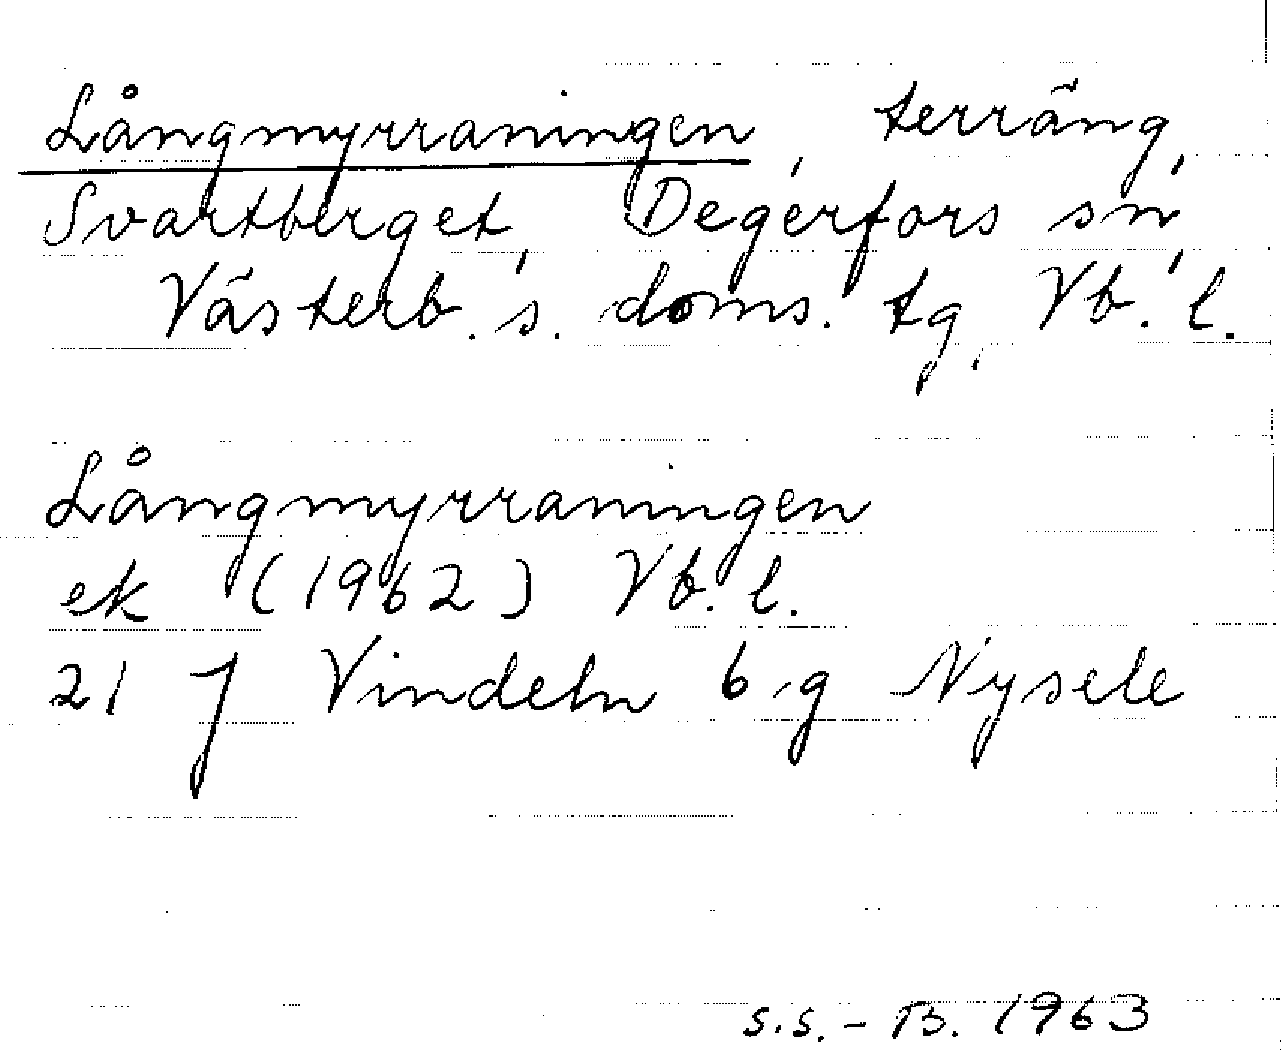 Långmyrraningen, terräng,
Svartberget, Degerfors sn,
Västerb. s. doms. tg, Vb. l.
Långmyrraningen
ek (1962) Vb. l.
21 J Vindeln 6 g Nysele
S.S. - B. 1963